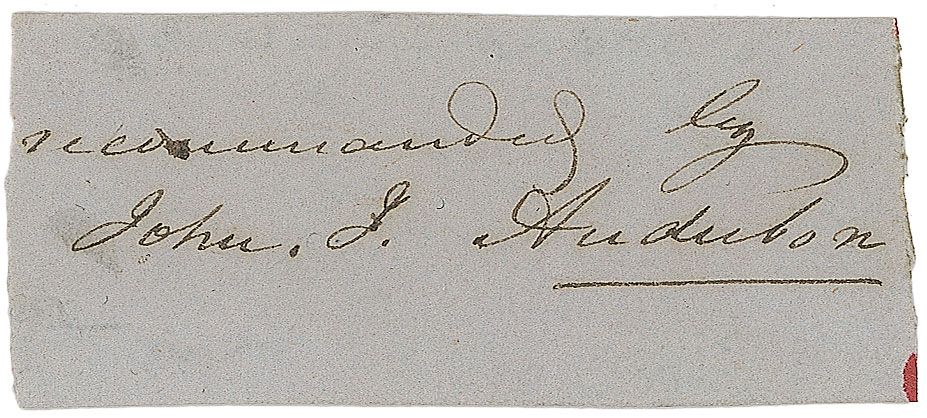 recommanded by
John. J. Audubon